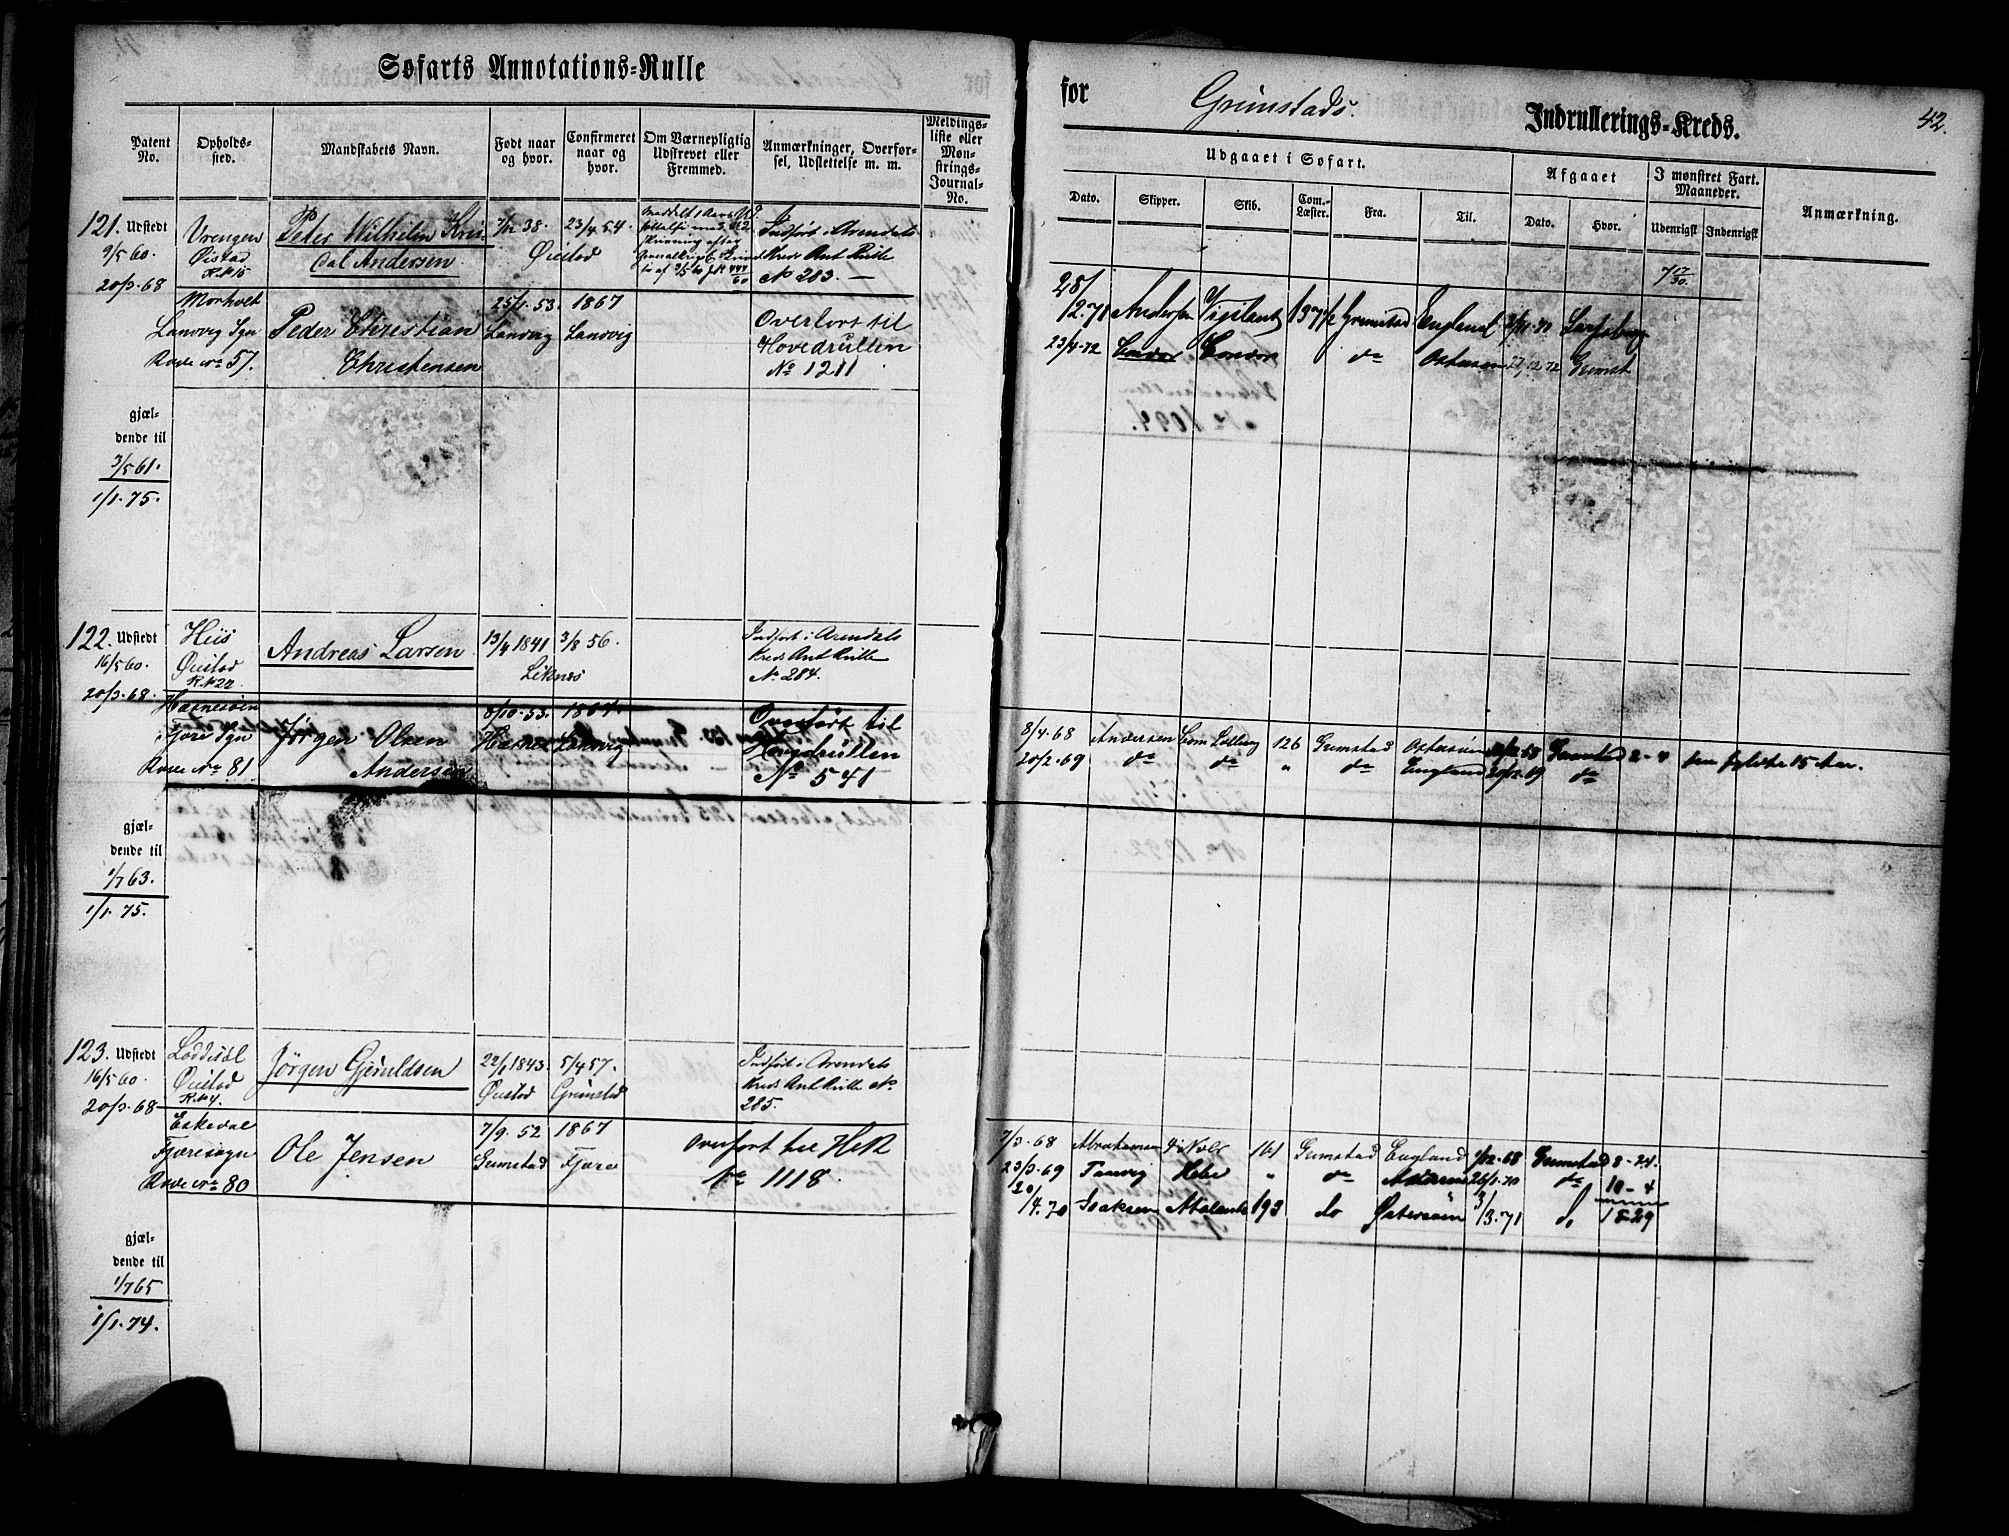 Søfarts Annotations-Rulle
for Grimstads Indrullerings-Kreds.
42.
Patent No.
Opholdssted.
Mandskabets Navn.
Født naar og hvor.
Confirmeret naar og hvor.
Om Værnepligtig Udskrevet eller Fremmed.
Anmærkninger, Overførsel, Udslettelse m. m.
Meldingsliste eller Mønstrings-Journal-No.
Udgaaet i Søfart.
Afgaaet
I mønstret Fart. Maaneder.
Anmærkning.
Dato.
Skipper.
Skib.
Com.-Læster.
Fra.
Til.
Dato.
Hvor.
Udenrigsk
Indenrigsk
121. Udstedt
9/5 60.
20/3. 68
Vrengen
Øistad
R.N. 15
Peder Wilhelm Kris
dal Andersen
7/12 38.
Øiestad
23/4. 54.
Indført i Arendals
Kreds Ant Rulle
No 283. —
Morholt
Landvig Sgn
Rode No 57.
Peder Christian
Christensen
25/1. 53.
Landvig
1867
Landvig
Overført til
Hovedrullen
No 1211
28/
/2. 71 Andersen Vigilant 137 1/2 Grimstad England
7 17/30
23/4. 72 Condor do Østersøen 27/12. 72 Grimst
gjæl-
dende til
3/5 61.
1/1. 75.
122. Udstedt
16/5 60.
20/3. 68.
Heis
Øiestad
R.N. 22.
Andreas Larsen
13/4 1841
3/8 56.
Liknes
Indført i Arendals
Kreds Ant Rulle
No 284.
Hasneseien
Fjære Sgn
Rode No 81
Jørgen Olsen
Andersen
8/10. 53.
Hasnes
1867.
Landvig
Overført til
Hovedrullen
No 541
8/4. 68 Andersen 126 Grimstad Østersøen Grimstad 2-4 før fyldte 15 Aar.
20/2. 69 do do " do England 20/12. 69 do
gjæl-
dende til
1/7 63.
1/1. 75.
123. Udstedt
16/5 60.
20/3. 68
Løddesøl
Øiestad
R.N. 4.
Jørgen Gjeruldsen
22/1 1843.
Øiestad
5/4 57.
Grimstad
Indført i Arendals
Kreds Ant Rulle No
285.
Eskedal
Fjæresogn
Rode No 80
Ole Jensen
7/9. 52
Grimstad
1867
Fjære
Overført til H R
No 1118
7/3. 68 Abrahamsen 161 Grimstad England 1/12. 68 Grimstad 8-24.
23/3. 69 Tanvig Hebe " do 26/1. 70 do 10-4
20/
/4. 70 Isaksen Atalanta 193 do Østersøen 3/
/3. 71 do 18 29
gjæl-
dende til
1/7 65
1/1. 74.